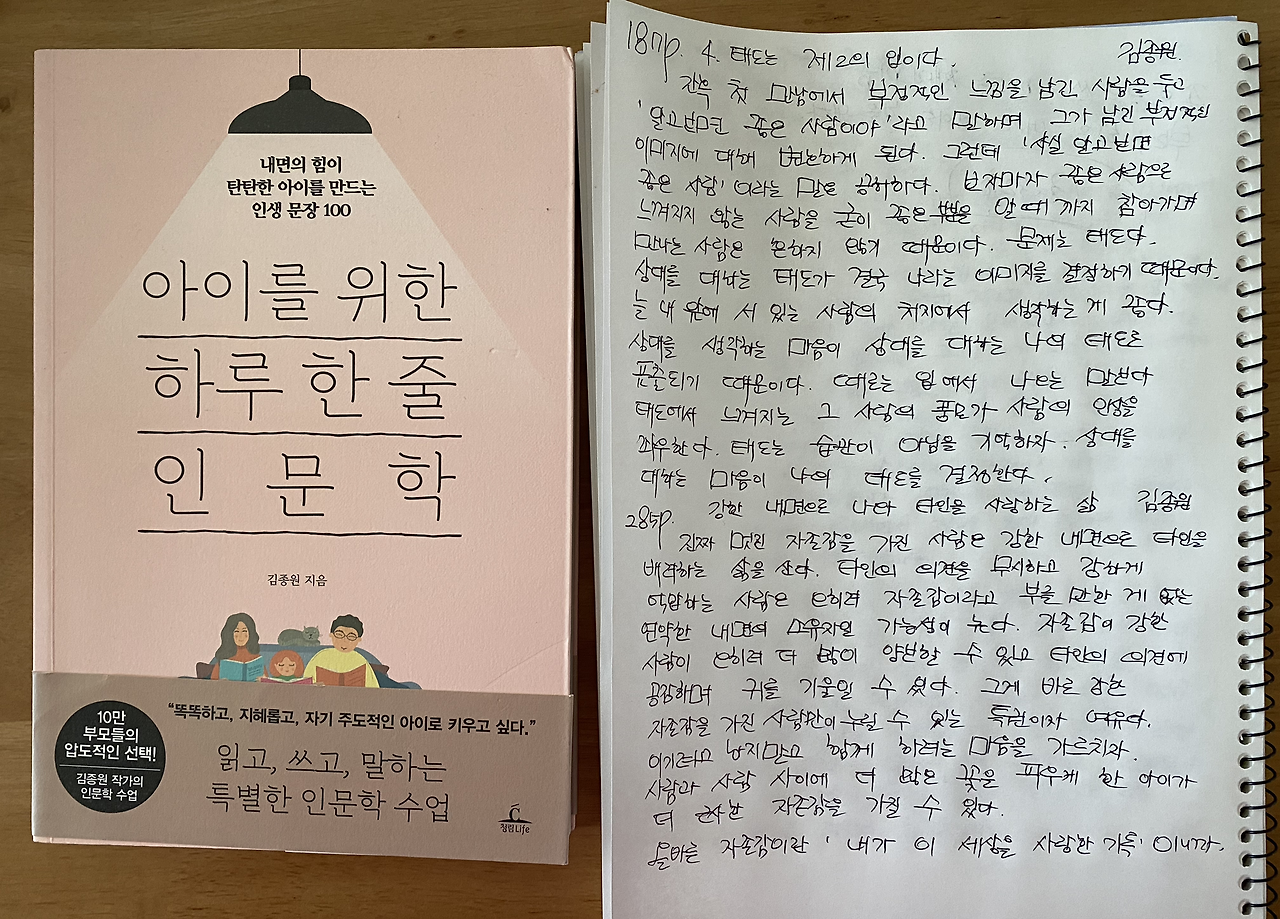 내면의 힘이
탄탄한 아이를 만드는
인생 문장 100
아이를 위한
하루 한 줄
인 문 학
김종원 지음
10만
부모들의
압도적인 선택!
김종원 작가의
인문학 수업
“똑똑하고, 지혜롭고, 자기 주도적인 아이로 키우고 싶다.”
읽고, 쓰고, 말하는
특별한 인문학 수업
청림Life
187p. 4. 태도는 제2의 입이다. 김종원.
간혹 첫 만남에서 부정적인 느낌을 남긴 사람을 두고
'알고보면 좋은 사람이야'라고 말하며 그가 남긴 부정적인
이미지에 대해 변호하게 된다. 그런데 '사실 알고보면
좋은 사람' 이라는 말은 공허하다. 보자마자 좋은 사람으로
느껴지지 않는 사람을 굳이 좋은 을 알 때 까지 참아가며
만나는 사람은 흔하지 않기 때문이다. 문제는 태도다.
상대를 대하는 태도가 결국 나라는 이미지를 결정하기 때문이다.
늘 내 앞에 서 있는 사람의 처지에서 생각하는 게 좋다.
상대를 생각하는 마음이 상대를 대하는 나의 태도로
표출되기 때문이다. 때로는 입에서 나오는 말보다
태도에서 느껴지는 그 사람의 풍모가 사람의 인상을
좌우한다. 태도는 습관이 아님을 기억하자. 상대를
대하는 마음이 나의 태도를 결정한다.
강한 내면으로 나와 타인을 사랑하는 삶 김종원
285p. 진짜 멋진 자존감을 가진 사람은 강한 내면으로 타인을
배려하는 삶을 산다. 타인의 의견을 무시하고 강하게
억압하는 사람은 오히려 자존감이라고 부를 만한 게 없는
연약한 내면의 소유자일 가능성이 높다. 자존감이 강한
사람이 오히려 더 많이 양보할 수 있고 타인의 의견에
공감하며 귀를 기울일 수 있다. 그게 바로 강한
자존감을 가진 사람만이 누릴 수 있는 특권이자 여유다.
이기려고 하지말고 함께 하려는 마음을 가르치자.
사람과 사람 사이에 더 많은 꽃을 피우게 한 아이가
더 근사한 자존감을 가질 수 있다.
올바른 자존감이란 '내가 이 세상을 사랑한 기록' 이니까.